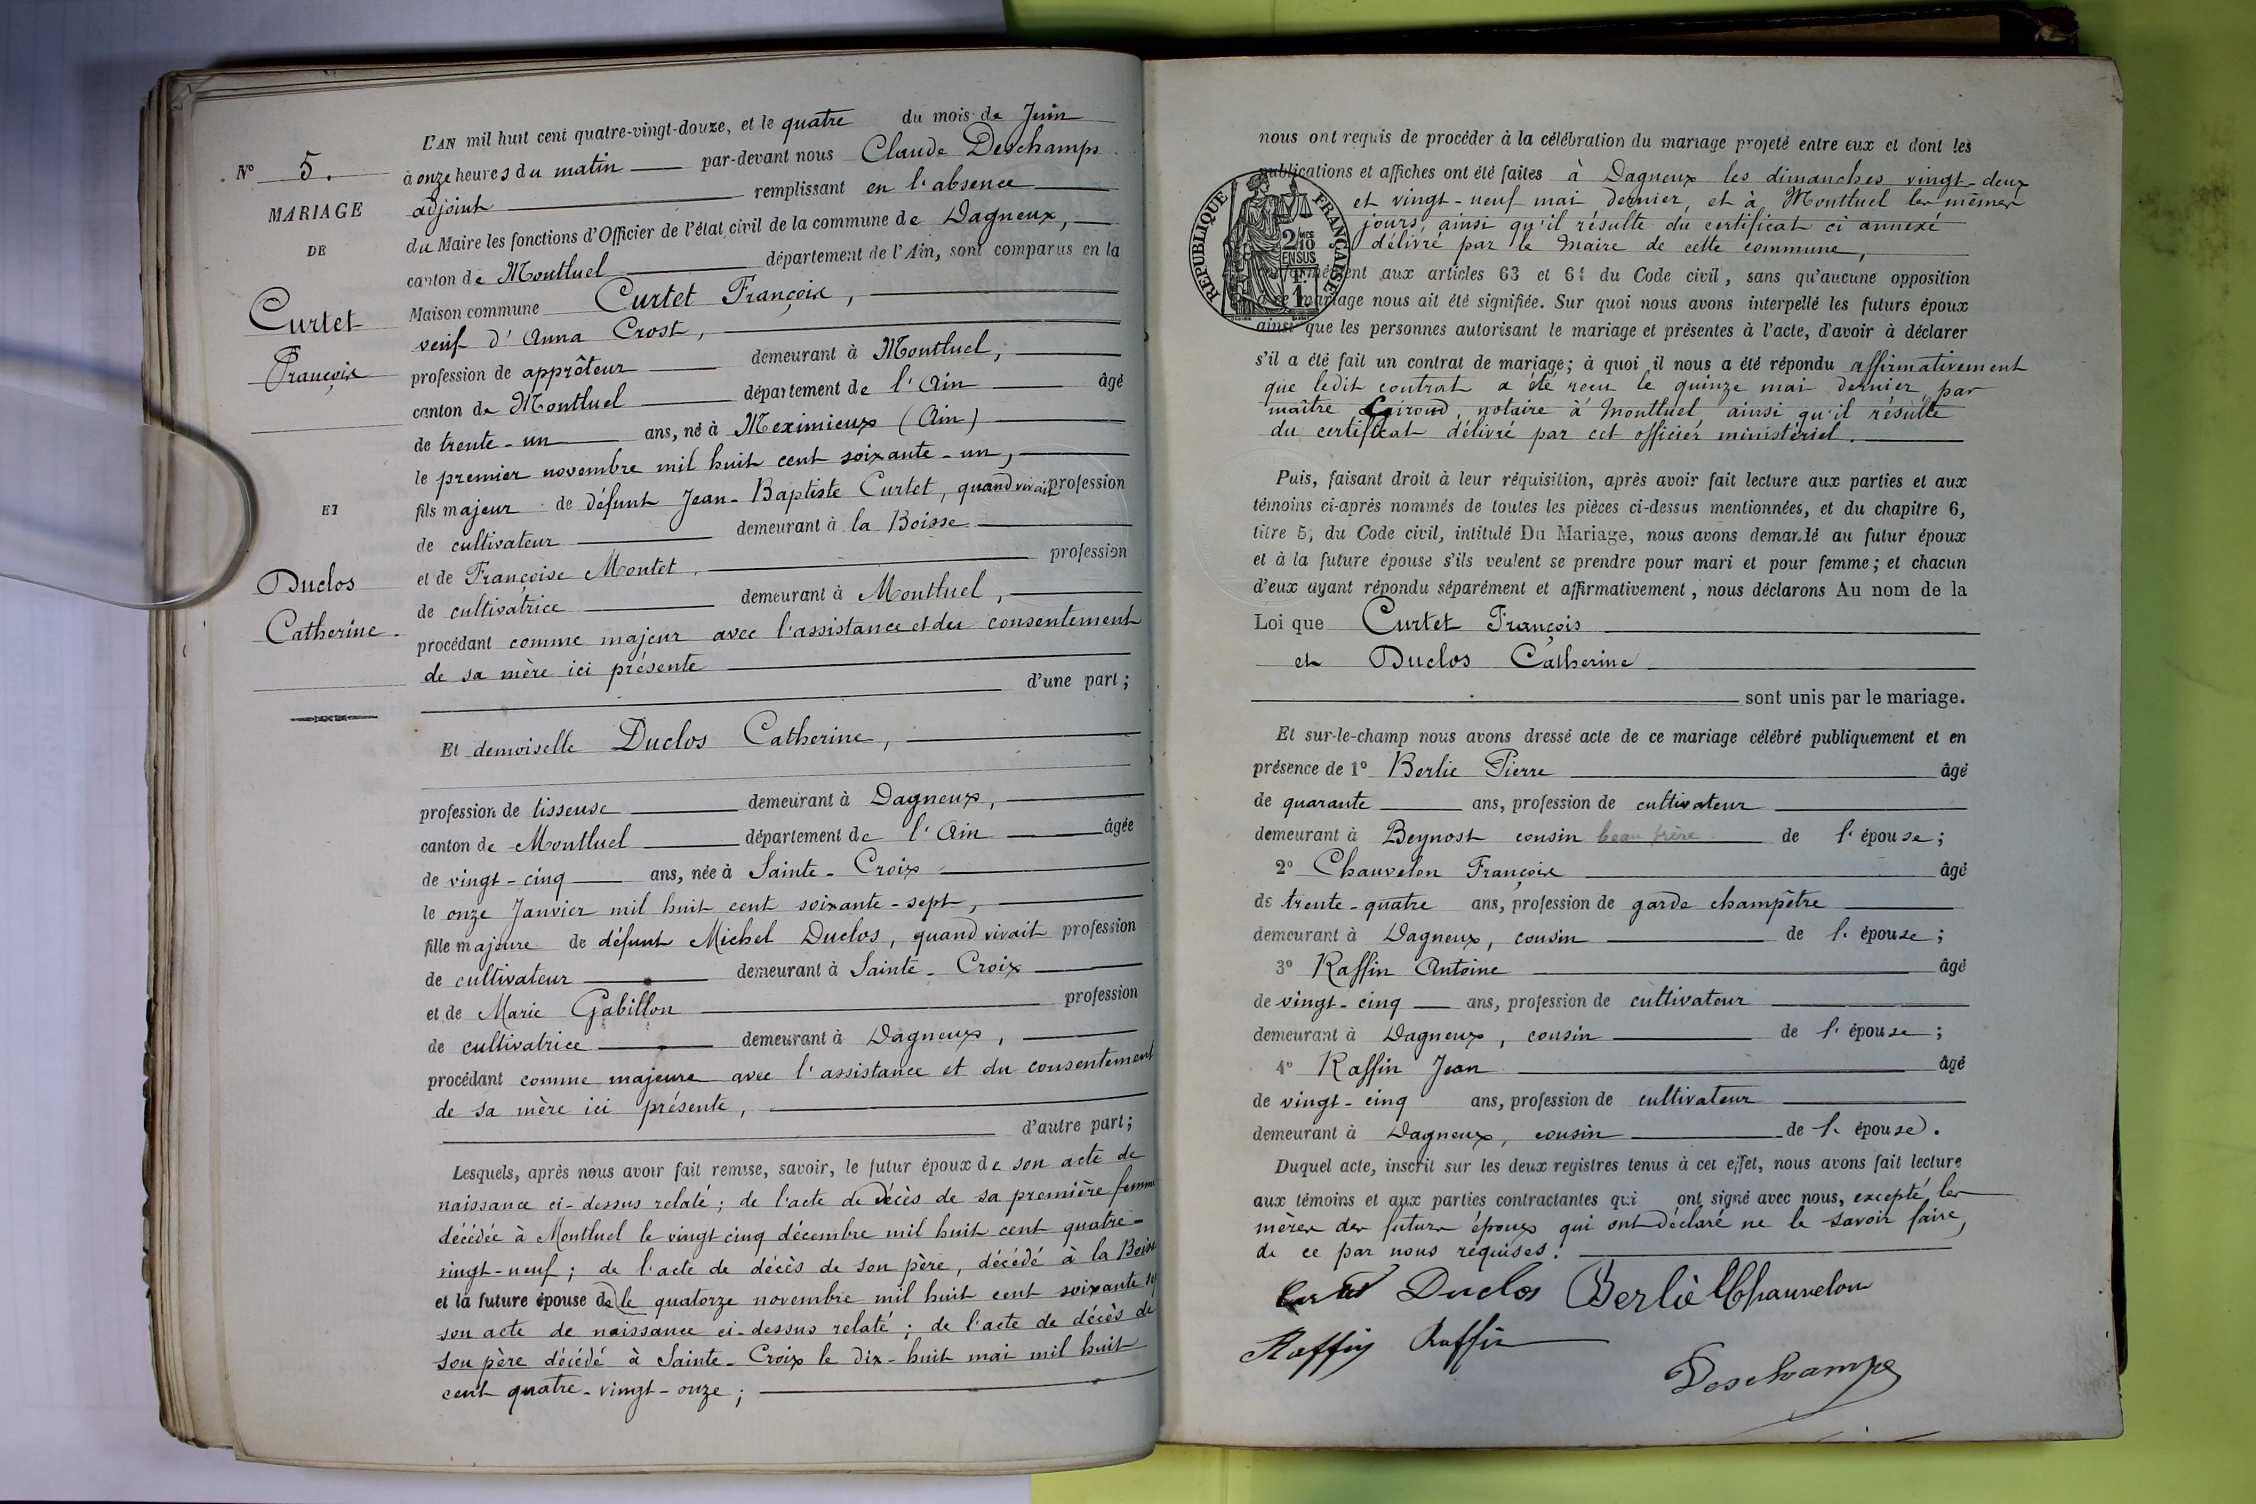 L'AN mil huit cent quatre-vingt-douze, et le quatre du mois de Juin
à onze heures du matin par-devant nous Claude Deschamps
adjoint remplissant en l'absence
du Maire les fonctions d'Officier de l'état civil de la commune de Dagneux,
canton de Montluel département de l'Ain, sont comparus en la
Maison commune Curtet François,
veuf d'Anna Crost,
profession de apprêteur demeurant à Montluel,
canton de Montluel département de l'Ain âgé
de trente-un ans, né à Meximieux (Ain)
le premier novembre mil huit cent soixante-un,
fils majeur de défunt Jean-Baptiste Curtet, quand vivait profession
de cultivateur demeurant à la Boisse
et de Françoise Montet, profession
de cultivatrice demeurant à Montluel,
procédant comme majeur avec l'assistance et du consentement
de sa mère ici présente
d'une part;
Et demoiselle Duclos Catherine,
profession de tisseuse demeurant à Dagneux,
canton de Montluel département de l'Ain âgée
de vingt-cinq ans, née à Sainte-Croix
le onze Janvier mil huit cent soixante-sept,
fille majeure de défunt Michel Duclos, quand vivait profession
de cultivateur demeurant à Sainte-Croix
et de Marie Gabillon profession
de cultivatrice demeurant à Dagneux,
procédant comme majeure avec l'assistance et du consentement
de sa mère ici présente,
d'autre part;
Lesquels, après nous avoir fait remise, savoir, le futur époux de son acte de
naissance ci-dessus relaté; de l'acte de décès de sa première femme
décédée à Montluel le vingt cinq décembre mil huit cent quatre-
vingt-neuf; de l'acte de décès de son père, décédé à la Boisse
et la future épouse de (le quatorze novembre mil huit cent soixante
son acte de naissance ci-dessus relaté; de l'acte de décès de
son père décédé à Sainte-Croix le dix-huit mai mil huit
cent quatre-vingt-onze;
N° 5.
MARIAGE
DE
Curtet
François
ET
Duclos
Catherine
nous ont requis de procéder à la célébration du mariage projeté entre eux et dont les
publications et affiches ont été faites à Dagneux les dimanches vingt-deux
et vingt-neuf mai dernier, et à Montluel les mêmes
jours, ainsi qu'il résulte du certificat ci annexé
délivré par le Maire de cette commune,
aux articles 63 et 64 du Code civil, sans qu'aucune opposition
à ce mariage nous ait été signifiée. Sur quoi nous avons interpellé les futurs époux
ainsi que les personnes autorisant le mariage et présentes à l'acte, d'avoir à déclarer
s'il a été fait un contrat de mariage; à quoi il nous a été répondu affirmativement
que ledit contrat a été reçu le quinze mai dernier, par
maître Giroud, notaire à Montluel ainsi qu'il résulte
du certificat délivré par cet officier ministériel.
Puis, faisant droit à leur réquisition, après avoir fait lecture aux parties et aux
témoins ci-après nommés de toutes les pièces ci-dessus mentionnées, et du chapitre 6,
titre 5, du Code civil, intitulé Du Mariage, nous avons demandé au futur époux
et à la future épouse s'ils veulent se prendre pour mari et pour femme; et chacun
d'eux ayant répondu séparément et affirmativement, nous déclarons Au nom de la
Loi que Curtet François
et Duclos Catherine
sont unis par le mariage.
Et sur-le-champ nous avons dressé acte de ce mariage célébré publiquement et en
présence de 1° Berlie Pierre âgé
de quarante ans, profession de cultivateur
demeurant à Beynost cousin beau frère de l'épouse;
2° Chauvelon François âgé
de trente-quatre ans, profession de garde champêtre
demeurant à Dagneux, cousin de l'épouse;
3° Raffin Antoine âgé
de vingt-cinq ans, profession de cultivateur
demeurant à Dagneux, cousin de l'épouse;
4° Raffin Jean âgé
de vingt-cinq ans, profession de cultivateur
demeurant à Dagneux, cousin de l'épouse.
Duquel acte, inscrit sur les deux registres tenus à cet effet, nous avons fait lecture
aux témoins et aux parties contractantes qui ont signé avec nous, excepté les
mères des futurs époux qui ont déclaré ne le savoir faire,
de ce par nous requises.
Curtet Duclos Berliè Chauvelon
Raffin Raffin
Deschamps
RÉPUBLIQUE FRANÇAISE
2/10 MES
EN SUS